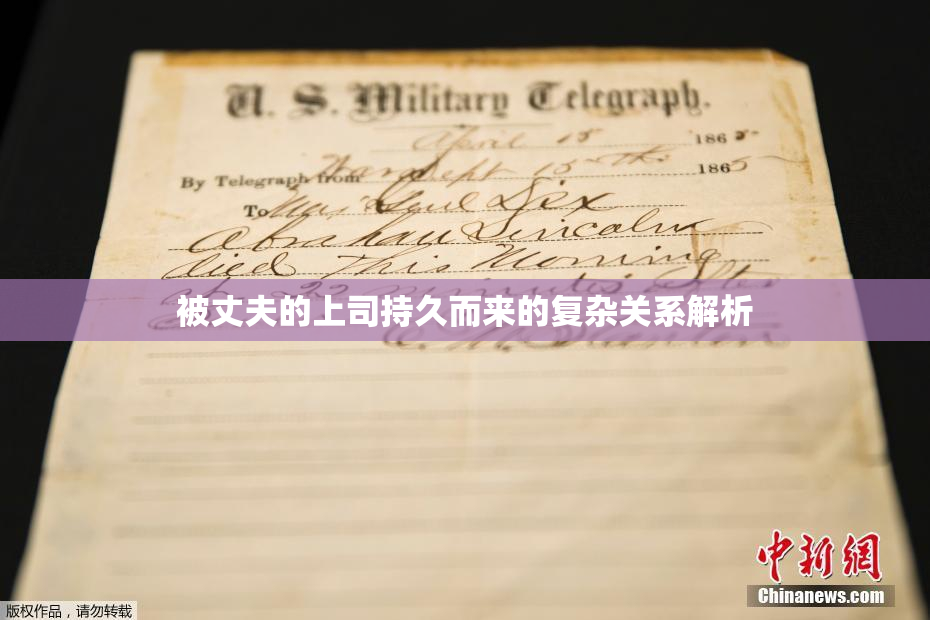 U. S. Military Telegraph.
April 15 1865
By Telegraph from War Dept 15th 1865
To Maj Genl Dix
Abraham Lincoln
died This Morning
at 22 minutes after
被丈夫的上司持久而来的复杂关系解析
E. M. Stanton
中新网
Chinanews.com
版权作品，请勿转载